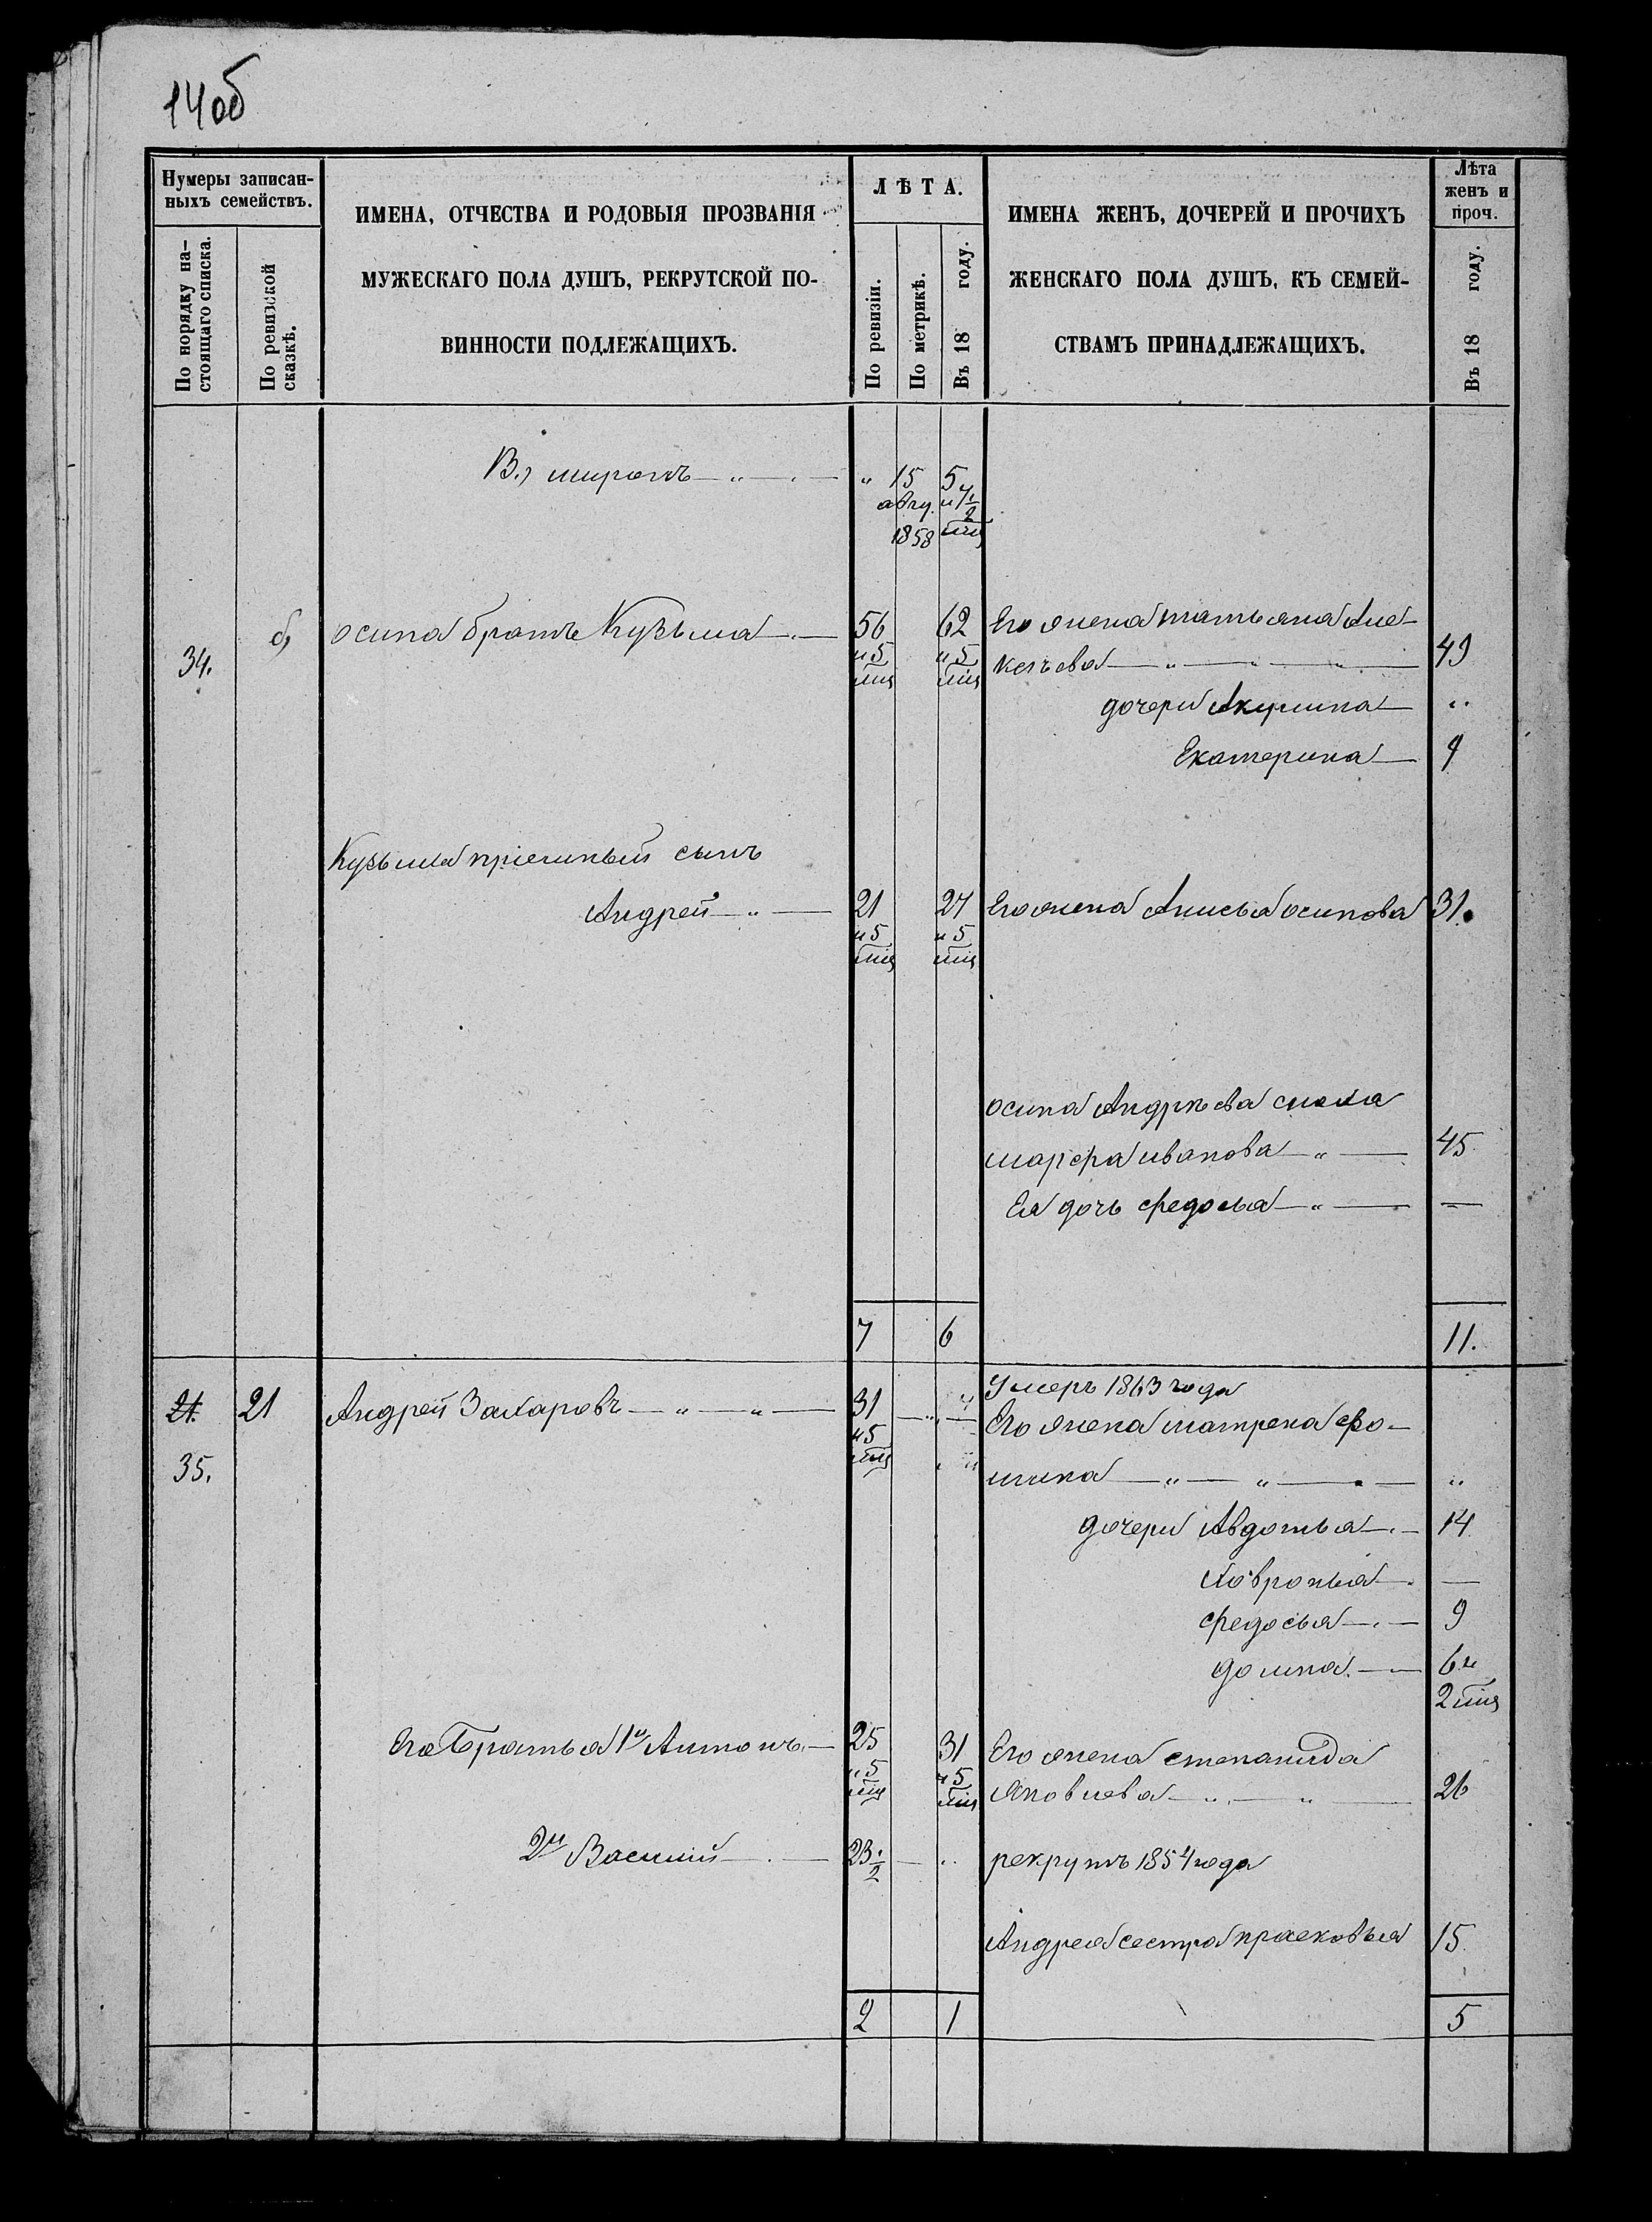 14об
Нумеры записан-
ныхъ семействъ.
По порядку на-
стоящаго списка.
По ревизской
сказкѣ.
ИМЕНА, ОТЧЕСТВА И РОДОВЫЯ ПРОЗВАНІЯ
МУЖЕСКАГО ПОЛА ДУШЪ, РЕКРУТСКОЙ ПО-
ВИННОСТИ ПОДЛЕЖАЩИХЪ.
ЛѢТА.
По ревизіи.
По метрикѣ.
Въ 18 году.
ИМЕНА ЖЕНЪ, ДОЧЕРЕЙ И ПРОЧИХЪ
ЖЕНСКАГО ПОЛА ДУШЪ, КЪ СЕМЕЙ-
СТВАМЪ ПРИНАДЛЕЖАЩИХЪ.
Лѣта
женъ и
проч.
Въ 18 году.
В.) миронъ — " — " 15 5
авгу. и 7 1/2
1858 мцъ
34. б) осипа братъ Кузьма — 56 62 Его жена татьяна Але-
и 5 и 5 ксѣева — " — " — 49
мцъ мцъ
дочери Акулина — "
Екатерина — 9
Кузьма пріемный сынъ
Андрей — " — 21 27 Его жена Анисья осипова 31.
и 5 и 5
мцъ мцъ
осипа Андрѣева сноха
марфа иванова — " — 45
Ея дочь федосья — " — —
7 6 11.
21. 21 Андрей Захаровъ — " — " — 31 — " — Умеръ 1863 года
и 5 Его жена матрена Фо-
35. мцъ мина — " — " — "
дочери Авдотья — 14
Хавронья — —
федосья — 9
домна. — 6 и
2 мцъ
Его Братья 1й Антонъ — 25 31 Его жена степанида
и 5 и 5 Яковлева — " — " — 26
мцъ мцъ
2й Василий — 23 1/2 — " рекрутъ 1854 года
Андрея сестра прасковья 15
2 1 5